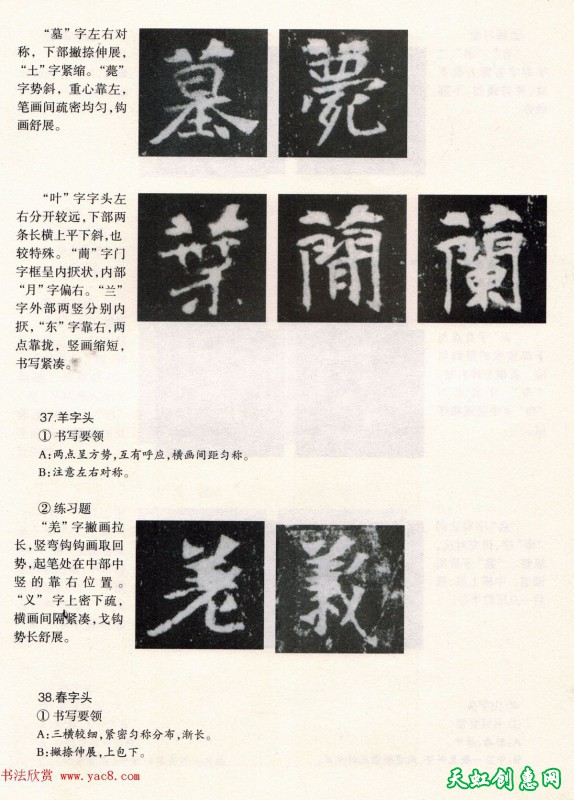 “墓”字左右对
称，下部撇捺伸展，
“土”字紧缩。“薨”
字势斜，重心靠左，
笔画间疏密均匀，钩
画舒展。
墓 薨
“叶”字字头左
右分开较远，下部两
条长横上平下斜，也
较特殊。“蕳”字门
字框呈内抚状，内部
“月”字偏右。“兰”
字外部两竖分别内
抚，“东”字靠右，两
点靠拢，竖画缩短，
书写紧凑。
葉 蕳 蘭
37.羊字头
①书写要领
A:两点呈方势，互有呼应，横画间距匀称。
B:注意左右对称。
②练习题
“羌”字撇画拉
长，竖弯钩钩画取回
势，起笔处在中部中
竖的靠右位置。
“义”字上密下疏，
横画间隔紧凑，戈钩
势长舒展。
羌 義
38.春字头
①书写要领
A:三横较细，紧密匀称分布，渐长。
B:撇捺伸展，上包下。
书法欣赏 www.yac8.com
天虹创意网